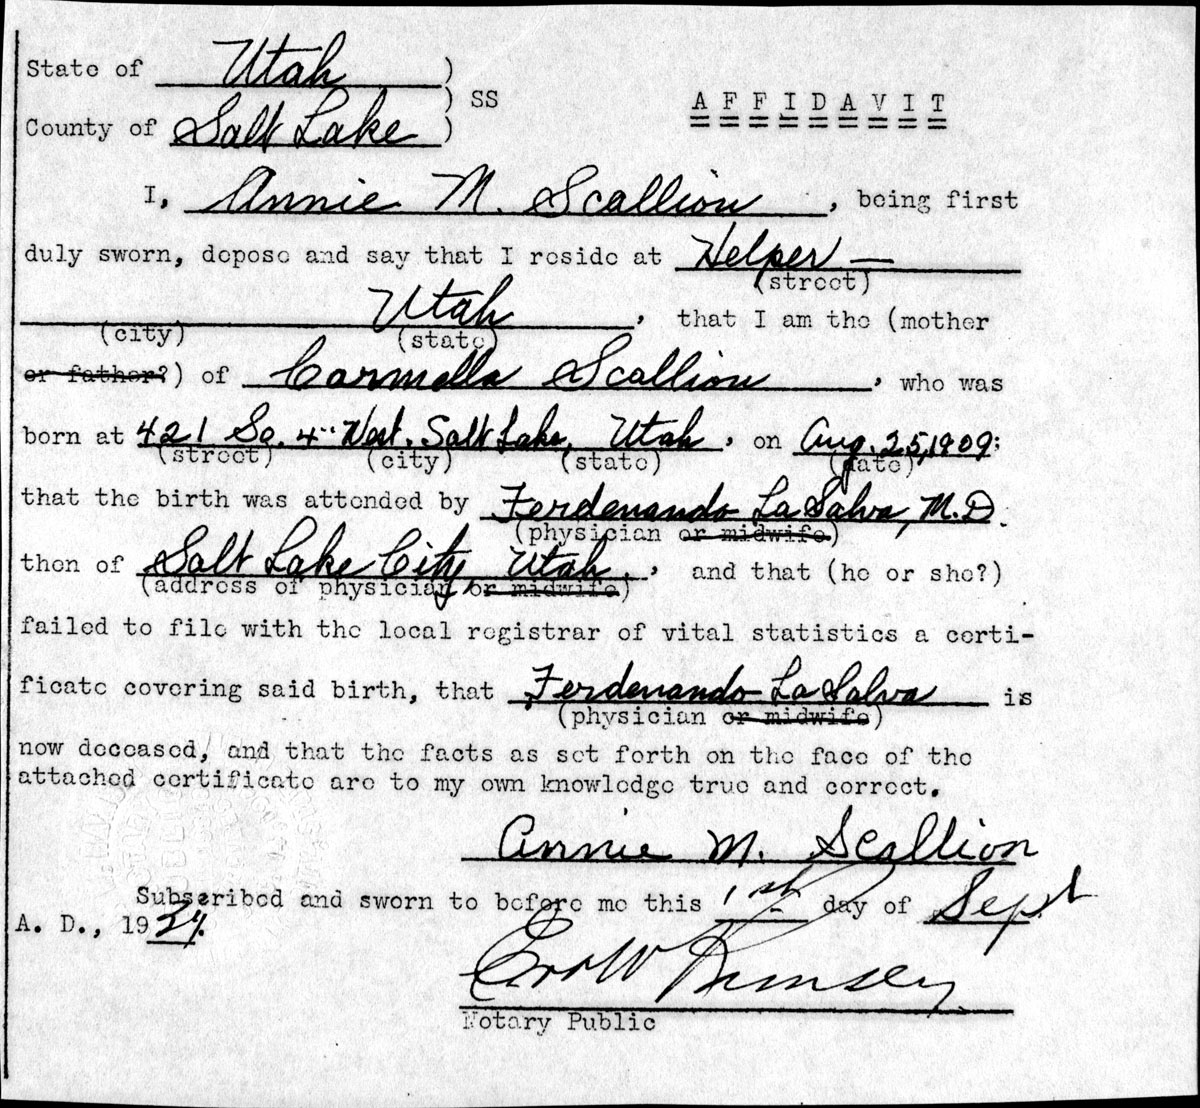 State of Utah )
) SS A F F I D A V I T
County of Salt Lake )
I, Annie M. Scallion, being first
duly sworn, depose and say that I reside at Helper —
(street)
Utah, that I am the (mother
(city) (state)
or father?) of Carmella Scallion, who was
born at 421 So. 4" West. Salt Lake, Utah, on Aug. 25, 1909;
(street) (city) (state) (date)
that the birth was attended by Ferdenando La Salva, M.D.
(physician or midwife)
then of Salt Lake City, Utah., and that (he or she?)
(address of physician or midwife)
failed to file with the local registrar of vital statistics a certi-
ficate covering said birth, that Ferdenando La Salva is
(physician or midwife)
now deceased, and that the facts as set forth on the face of the
attached certificate are to my own knowledge true and correct.
Annie M. Scallion
Subscribed and sworn to before me this 1st day of Sept
A. D., 19
Rumsey
Notary Public